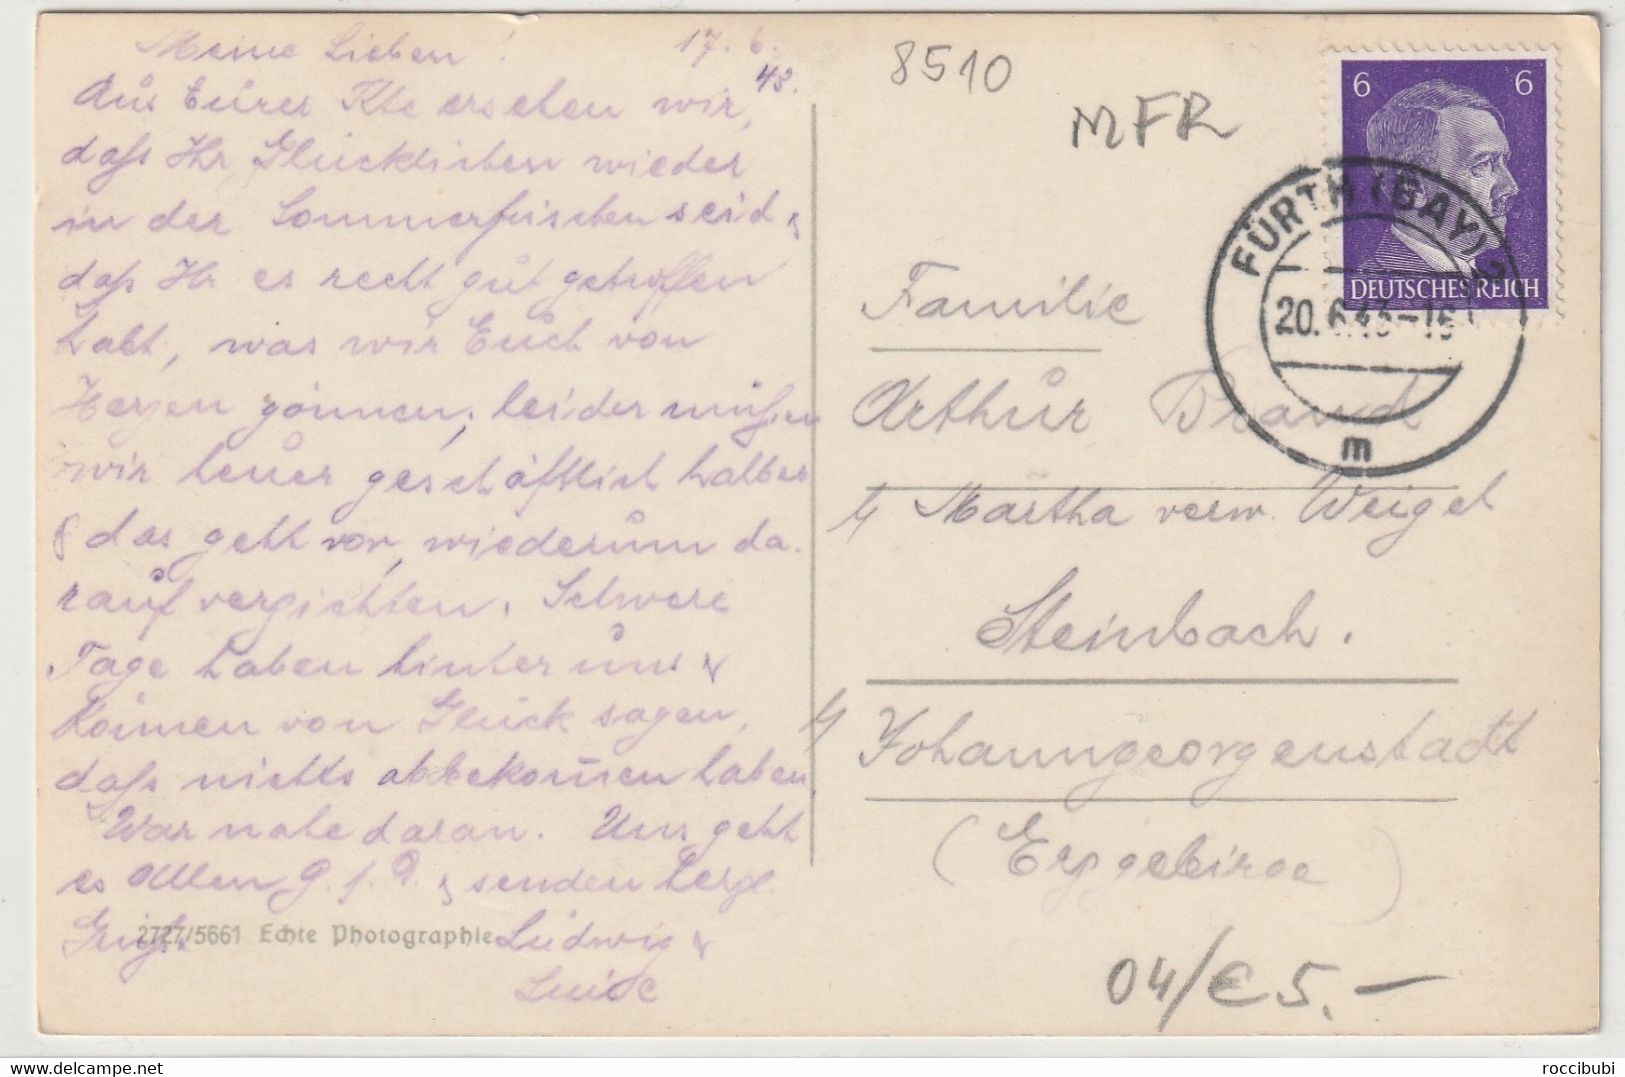 Meine Lieben! 17. 6.
43.
Aus Eurer Kte ersehen wir,
daß Ihr Glücklichen wieder
in der Sommerfrischen seid &
daß Ihr es recht gut getroffen
habt, was wir Euch von
Herzen gönnen, leider müßen
wir heuer geschäftlich halber
& das geht vor, wiederum da-
rauf verzichten. Schwere
Tage haben hinter uns &
können von Glück sagen,
daß nichts abbekom̅en haben.
War nahe daran. Uns geht
es Allen G. s. D. & senden herzl.
Grüße
Ludwig &
Luise
2727/5661 Echte Photographie
8510
MFR
6 6
DEUTSCHES REICH
FÜRTH (BAY) 2
20.6.43-15
m
Familie
Arthur Brand
b/ Martha verw. Weigel
Steinbach.
b/ Johanngeorgenstadt
(Erzgebirge)
04/€ 5.-
roccibubi
delcampe.net